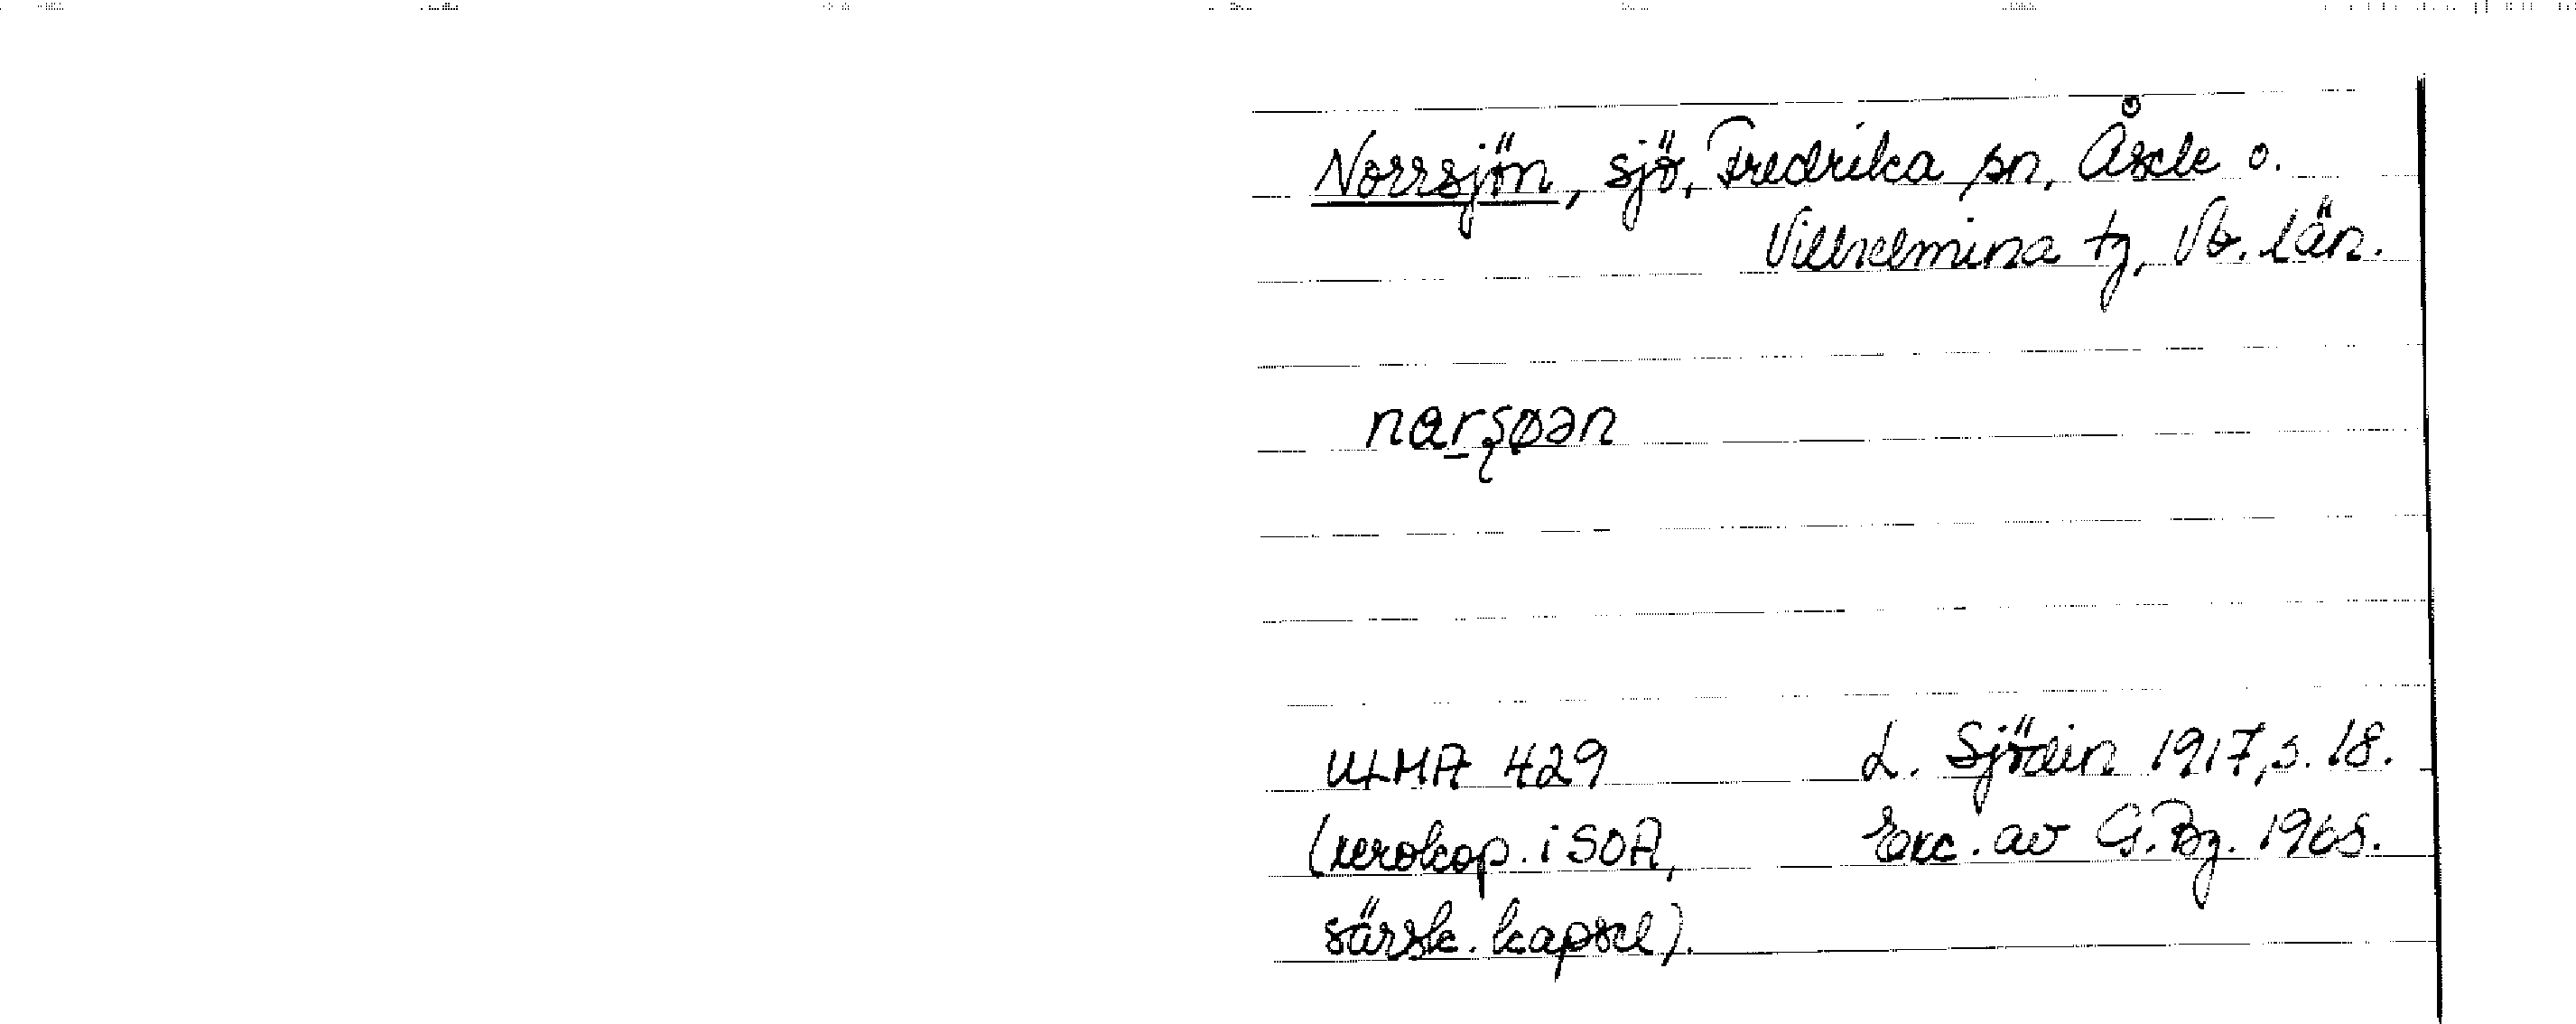 Norrsjön, sjö, Fredrika sn, Åsele o.
Vilhelmina tg, Vb. län.
ULMA 429
L. Sjödin 1917, s. 18.
(xerokop. i SOA,
Exc. av G. Bg. 1968.
särsk. kapsel).